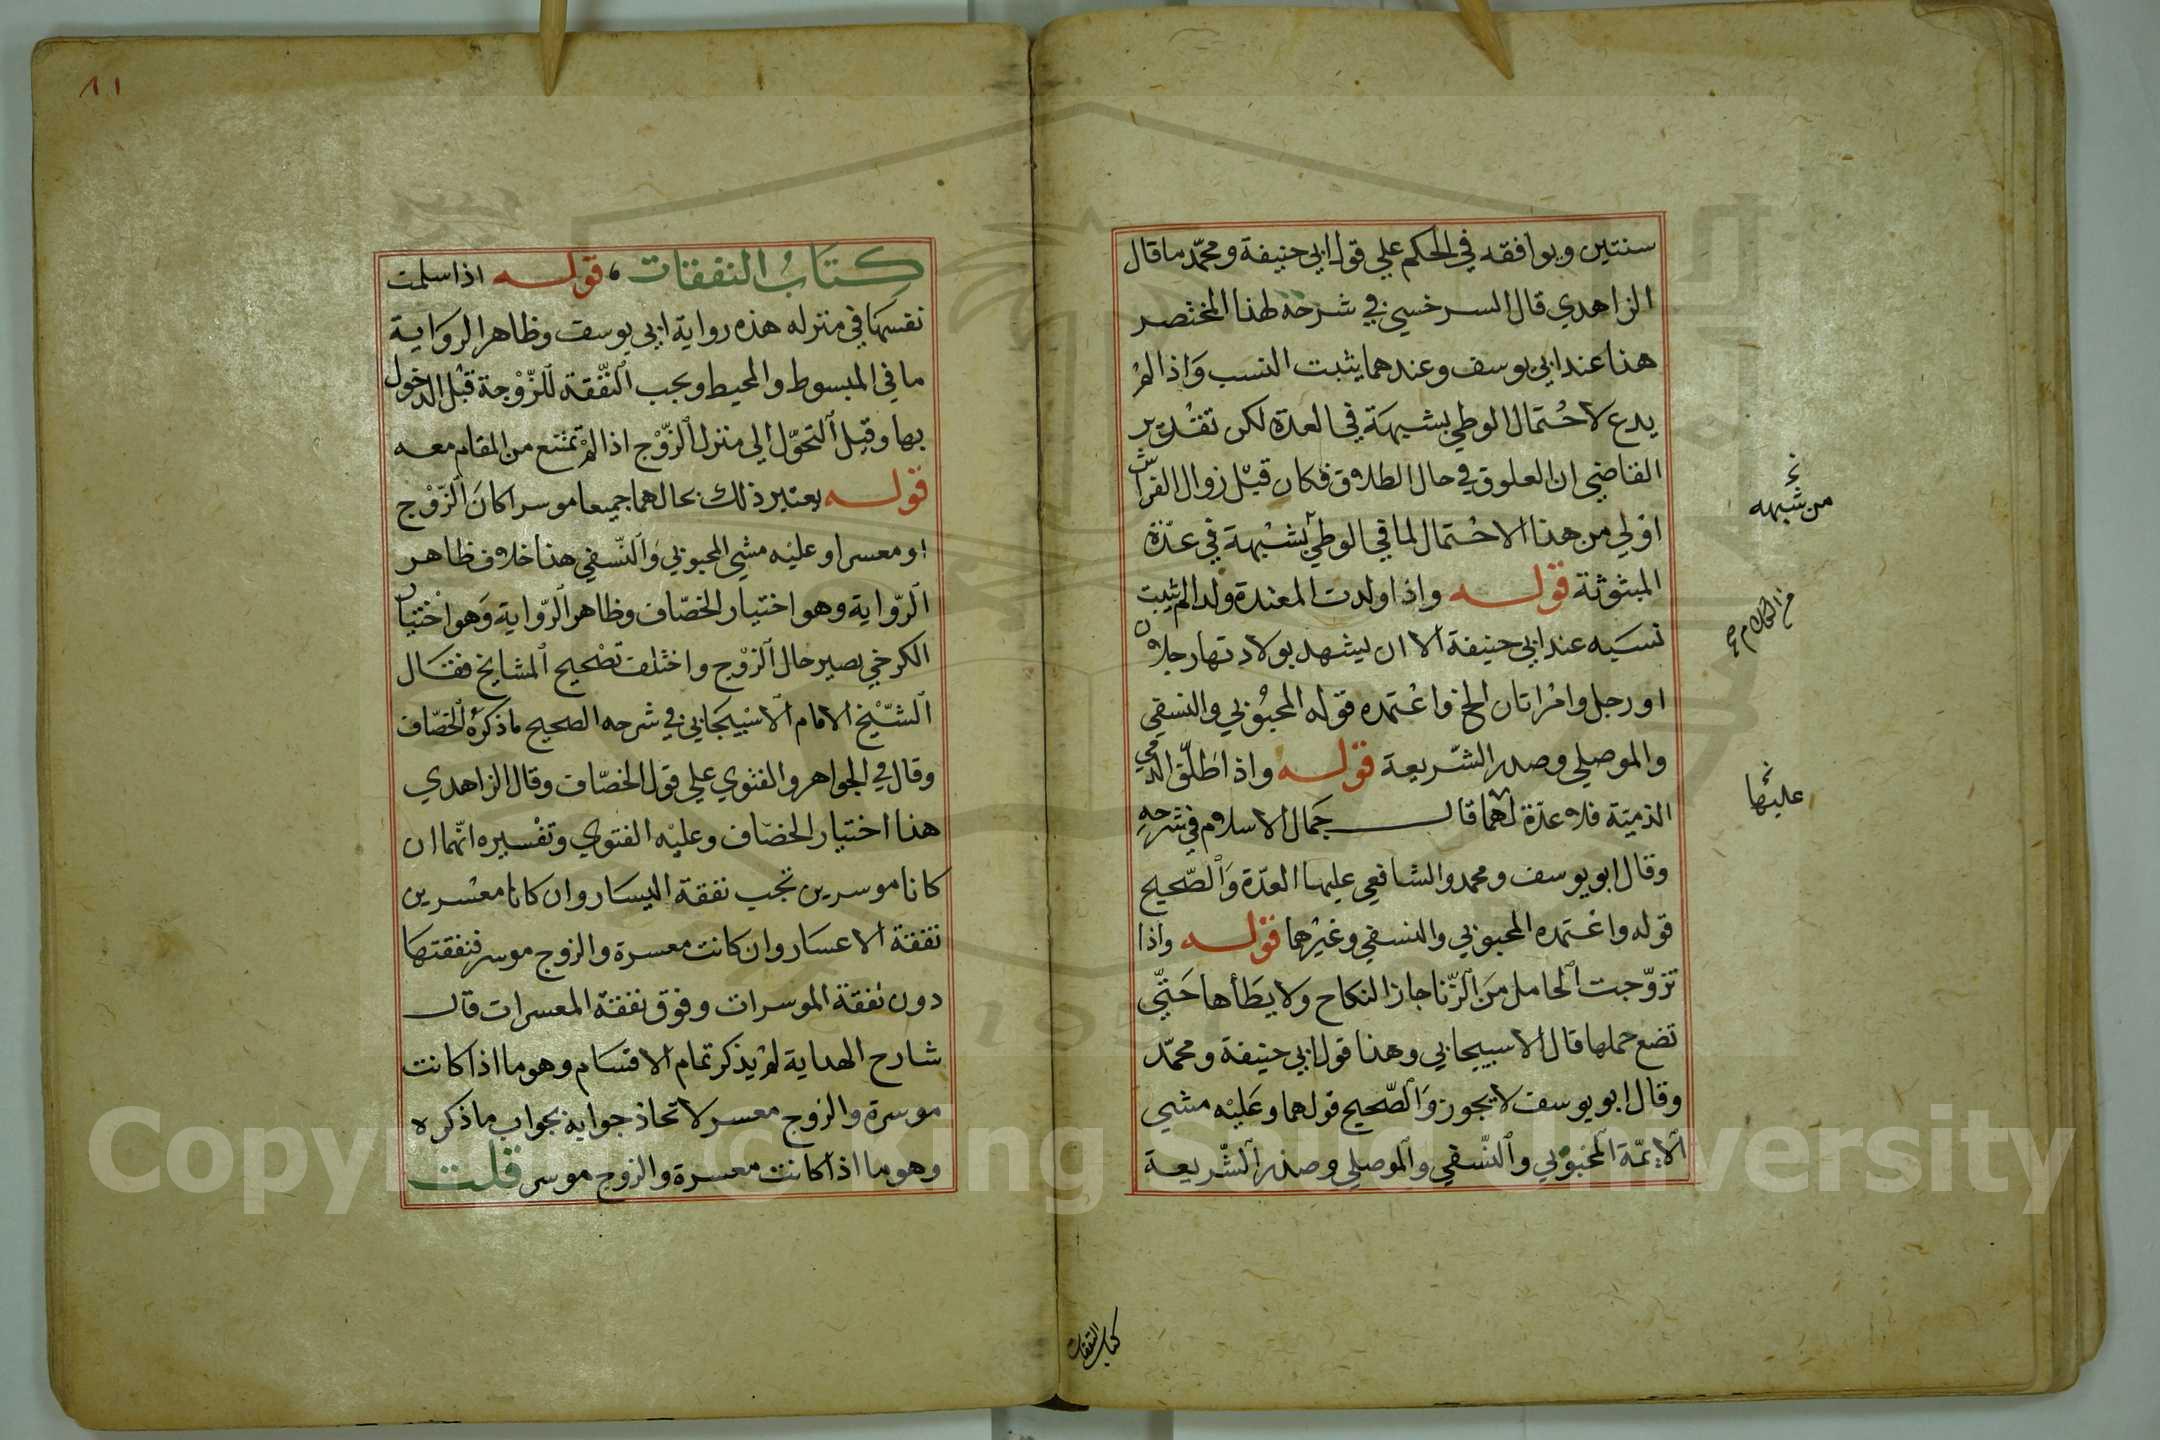 سنتين ويوافقه في الحكم علي قول ابي حنيفة ومحمد ما قال
الزاهدي قال السرخسي في شرحه لهذا المختصر
هذا عند ابي يوسف وعندهما يثبت النسب وَاذا لمْ
يدع لاحْتمال الوطي بشبهَة في العدة لكن تقْدير
القاضي ان العلوق في حال الطلاق فكان قبْل زوال الفراش
اوْلي من هذا الاحْتمال لما في الوطي بشبْهة في عدّة
المبثوثة قوله واذا ولدت المعتدة ولدا لم يثبت
نسَبه عند ابي حنيفة الا ان يشهد بولادتها رجلان
او رجل وامْراتان الخ واعْتمده قوله المحبُوبي والنسفي
والموصلي وصدر الشّريعة قوله واذا طلّق الذمي
الذميّة فلا عدّة لهما قال جَمال الاسلام في شرحِهِ
وقال ابو يوسف ومحمد والشافعي عليها العدّة وَالصّحيح
قوله واعْتمده المحبوبي والنسفي وغيْرهما قوله واذا
تزوّجت الحامل مِنَ الزّنا جاز النكاح ولا يطَأها حَتّي
تضع حملها قال الاسبيجابي وهذا قول ابي حنيفة ومحمّد
وقال ابو يوسف لا يجوز وَالصّحيح قولهما وعَليْه مشي
الايمّة المحْبوبي والنّسفي والموصلي وصدر الشّريعة
من شبهه
عليْها
كتاب النفقات
١١
كِتَابُ النفقات قوله اذا سلمت
نفسهَا في منزله هذه رواية ابي يوسف وظاهر الروَاية
ما في المبسوط والمحيط ويجب النّفقة للزّوْجة قبْل الدخول
بها وقبل التحوّل الي منزل الزّوْج اذا لمْ تمتنع من المقام معه
قوله يعتبر ذلك بحالهما جميعا موسرا كانَ الزّوْج
او معسرا وعليْه مشي المحبوبي وَالنّسفي هذا خلاف ظاهر
الرّواية وهو اختيار الخصّاف وظاهر الرّواية وَهو اخْتيار
الكرخي بصير حال الزوْج واختلف تصْحيح المشايخ فقَال
الشّيْخ الامام الاسْبيجَابي في شرحه الصحيح ما ذكرهُ الخصّاف
وقال في الجواهر والفتوي علي قول الخصّاف وقال الزاهدي
هذا اختيار الخصّاف وعليْه الفتوي وتفْسيره انّهما ان
كانا موسرين تجب نفقة اليسَار وان كانا معْسرين
نفقة الاعسار وان كانت معسرة والزوج موسر فنفقتهَا
دون نفقة الموسرات وفوق نفقة المعسرات قال
شارح الهداية لمْ يذكر تمام الاقسَام وهو ما اذا كانت
موسرة والزوج معسر لاتحاذ جوابه بجواب ما ذكره
وهو ما اذا كانت معسرة والزوج موسر قلت
Copyright © King Saud University